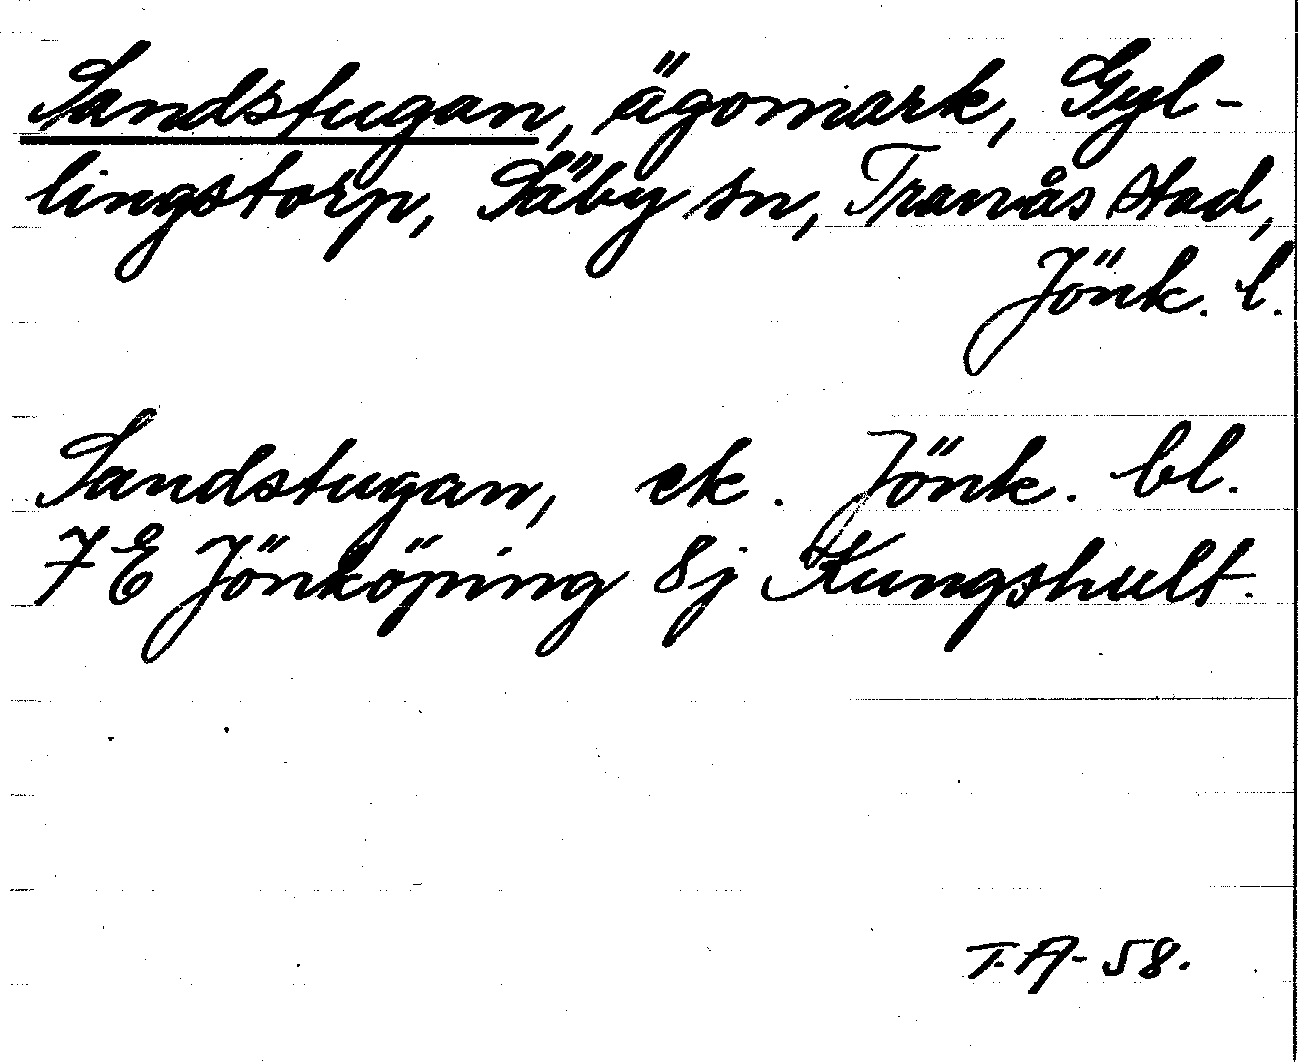 Sandstugan, ägomark, Gyl-
lingstorp, Säby sn, Tranås stad,
Jönk. l.
Sandstugan, ek. Jönk. bl.
7 E Jönköping 8j Kungshult.
T. A-58.